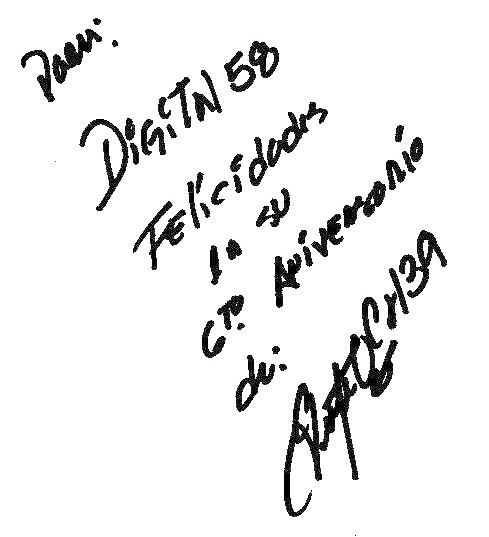 Para:
DIGITAL 58
FELICIDADES
EN SU
6TO ANIVERSARIO
de: